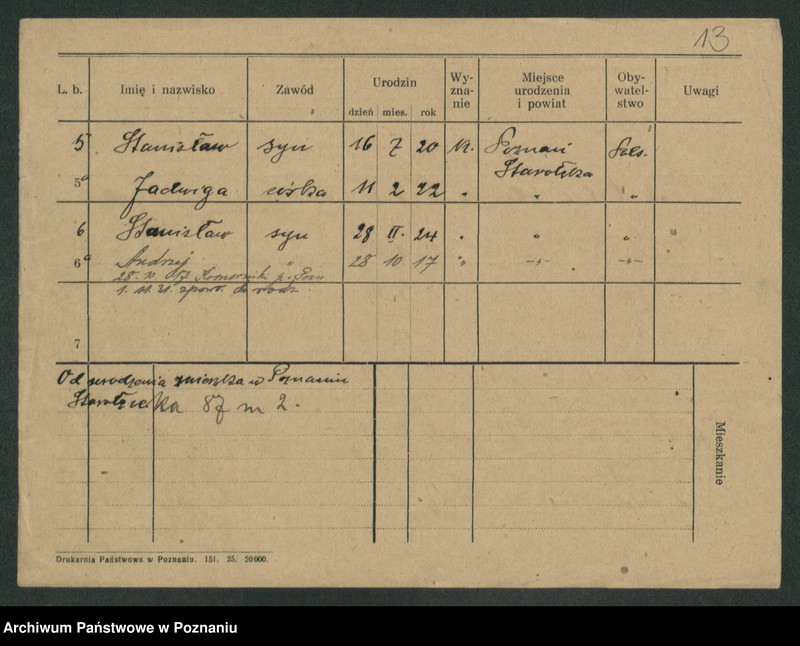 13
L. b. Imię i nazwisko Zawód Urodzin dzień mies. rok Wy-zna-nie Miejsce urodzenia i powiat Oby-watel-stwo Uwagi
5 Stanisław syn 16 7 20 Poznań Pols.
Starołęka
5a Jadwiga córka 11 2 22 " " "
6 Stanisław syn 28 II. 24 " " "
6a Andrzej " 28 10 17 " -"- -"-
28. 10. 17 Komorniki p. Pozn
1. 11. 31. zpowr. do rodz.
7
Od urodzenia mieszka w Poznaniu
Starołęcka 87 m 2.
Mieszkanie
Drukarnia Państwowa w Poznaniu. 151. 25. 20000.
Archiwum Państwowe w Poznaniu